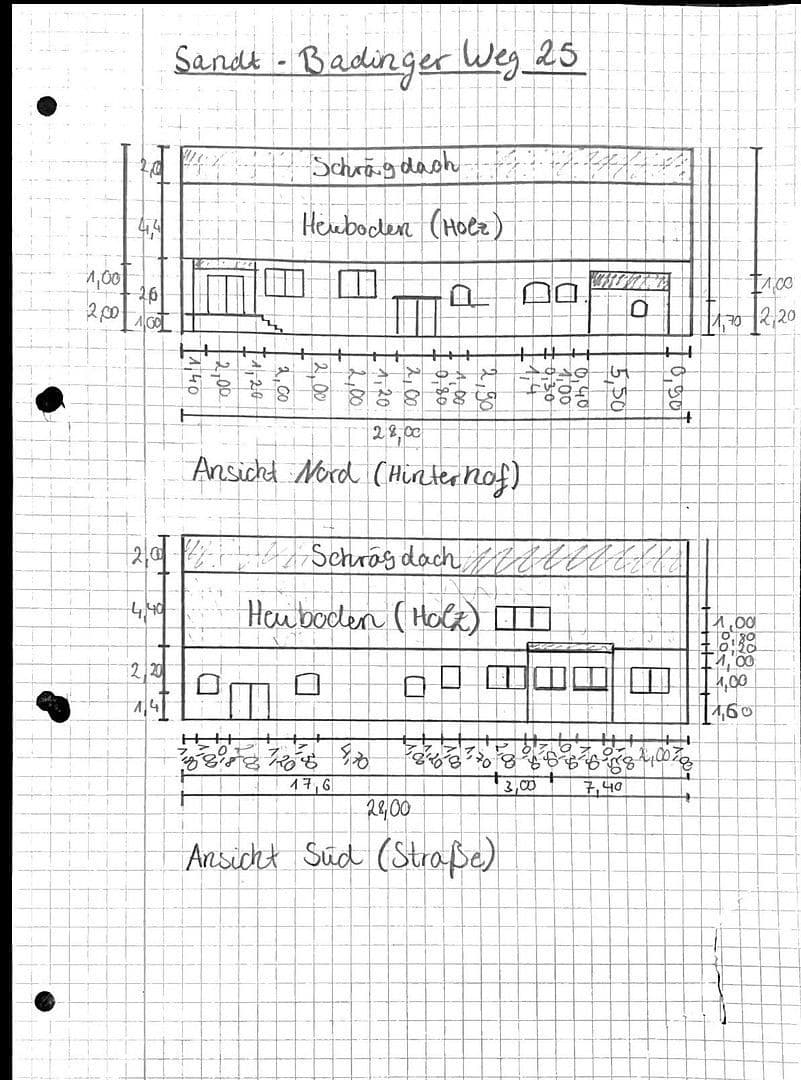 Sandt - Badinger Weg 25
Schrägdach
Heuboden (Holz)
2,0
4,4
2,6
1,00
1,00
2,00
1,00
2,20
1,70
1,40 2,00 1,20 2,00 2,00 2,00 1,20 2,00 0,80 1,00 2,50 1,4 0,30 1,00 0,40 5,50 0,90
28,00
Ansicht Nord (Hinterhof)
Schrägdach
Heuboden (Holz)
2,00
4,40
2,20
1,4
1,00
0,80
0,20
1,00
1,00
1,60
1,20 4,70 2,00
17,6 3,00 7,40
28,00
Ansicht Süd (Straße)